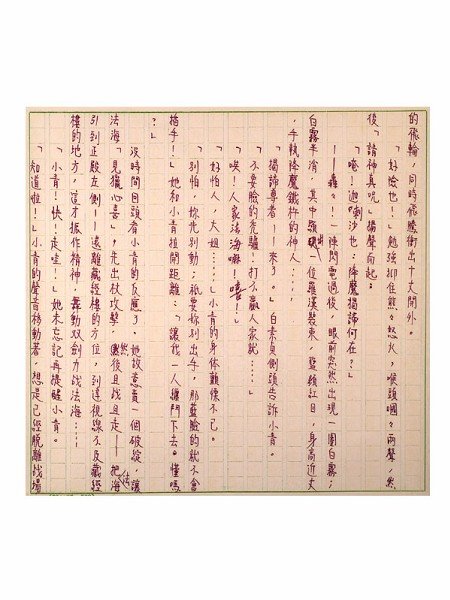 的飛輪，同時飛騰衝出十丈開外。
「好險也！」勉強抑住熊熊怒火，喉頭嗯々兩聲，然
後「請神真咒」揚聲而起：
「唵！迦喇沙也：降魔揭諦何在？」
——轟々！一陣閃電過後，眼前突然出現一團白霧；
白霧半消，其中顯現出一位羅漢裝束，藍顏紅目，身高近丈
，手執降魔鐵杵的神人……
「揭諦尊者——來了。」白素貞側頭告訴小青。
「不要臉的禿驢！打不贏人家就……」
「唉！人家法海嘛！嘻！」
「好怕人，大姐……」小青的身体顫慄不已。
「別怕，妳先別動；祇要妳別出手，那藍臉的就不會
插手！」她和小青拉開距離：「讓我一人纏鬥下去。懂嗎
？」
沒時間回頭看小青的反應了。她故意賣一個破綻，讓
法海「見獵心喜」，先出杖攻擊，然後且戰且走——把法海
引到正殿左側——遠離藏經樓的方位，到達視線不及藏經
樓的地方，這才振作精神，舞動双劍力战法海……
「小青！快！走哇！」她未忘記再提醒小青。
「知道啦！」小青的聲音移動著，想是已經脫離战場